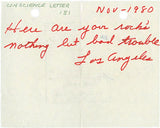 CONSCIENCE LETTER
'81
Nov-1980
Here are your rocks
nothing but bad trouble
Los Angeles